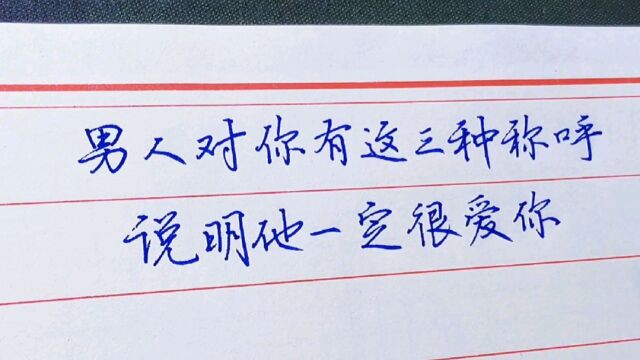 男人对你有这三种称呼
说明他一定很爱你